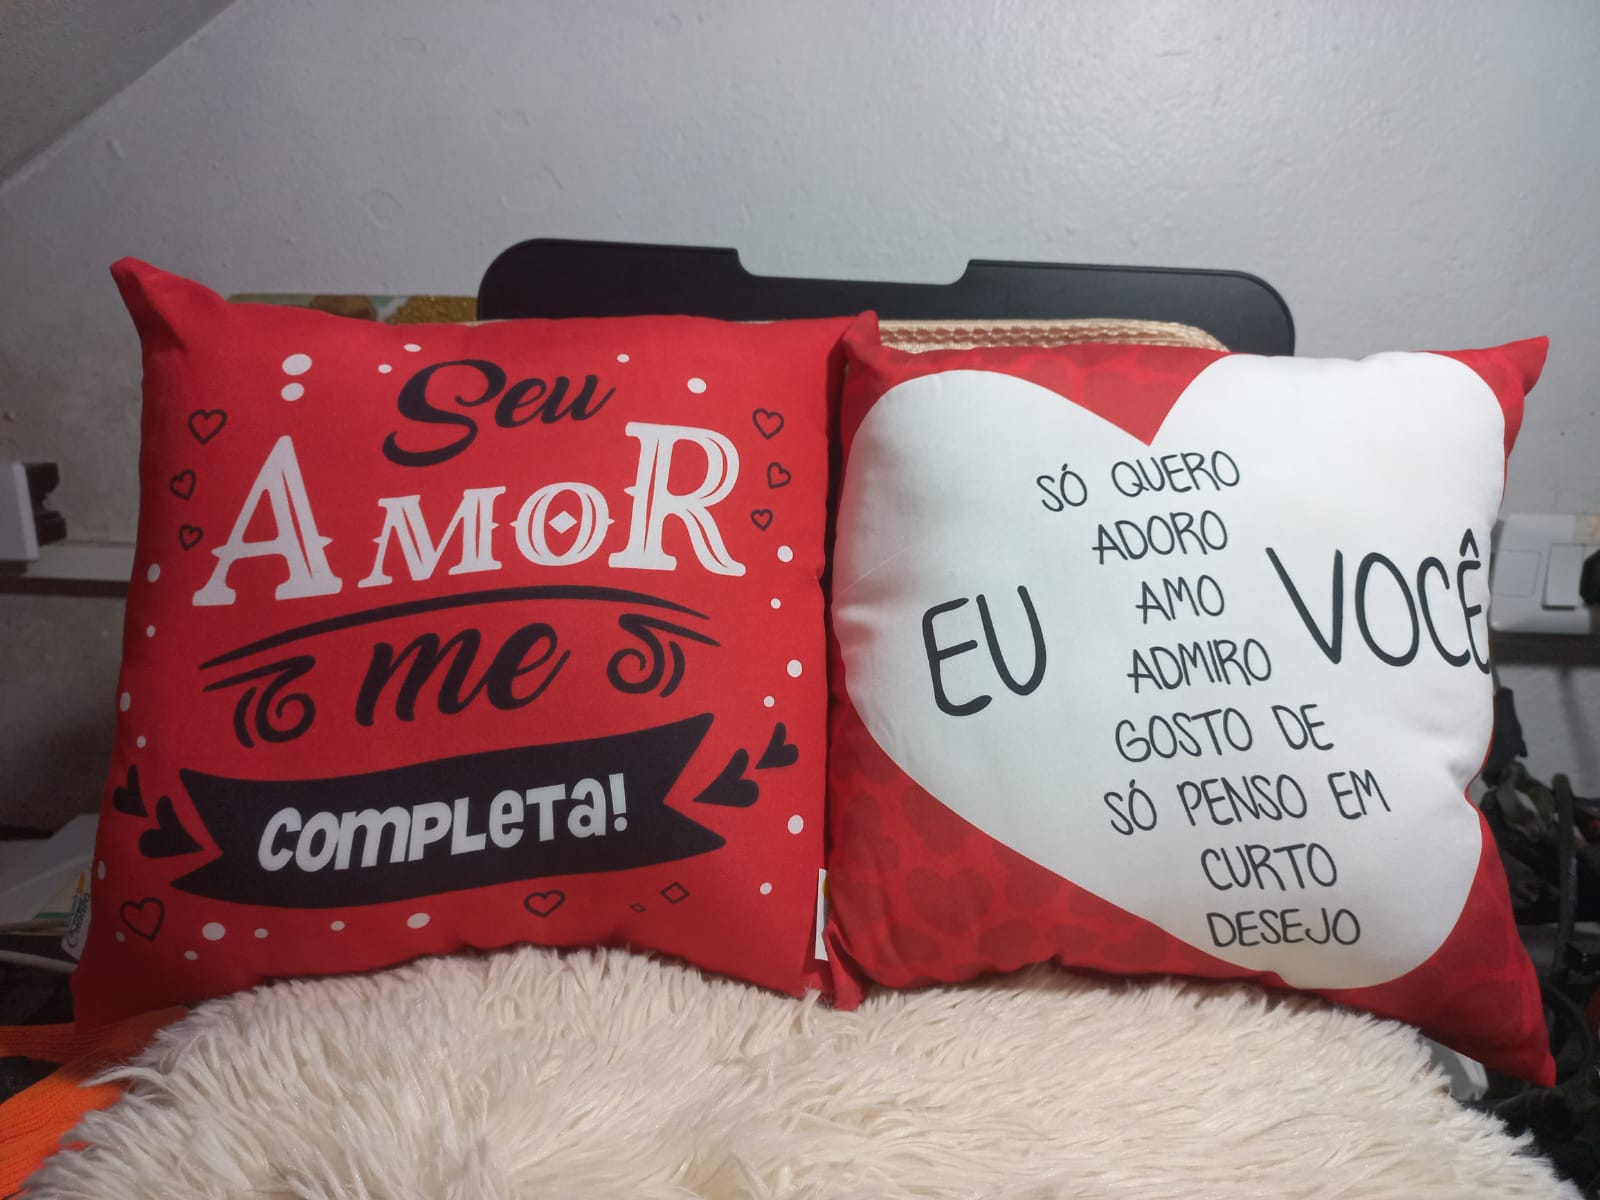 Seu
AMOR
me
COMPLETA!
SÓ QUERO
ADORO
AMO
EU
VOCÊ
ADMIRO
GOSTO DE
SÓ PENSO EM
CURTO
DESEJO